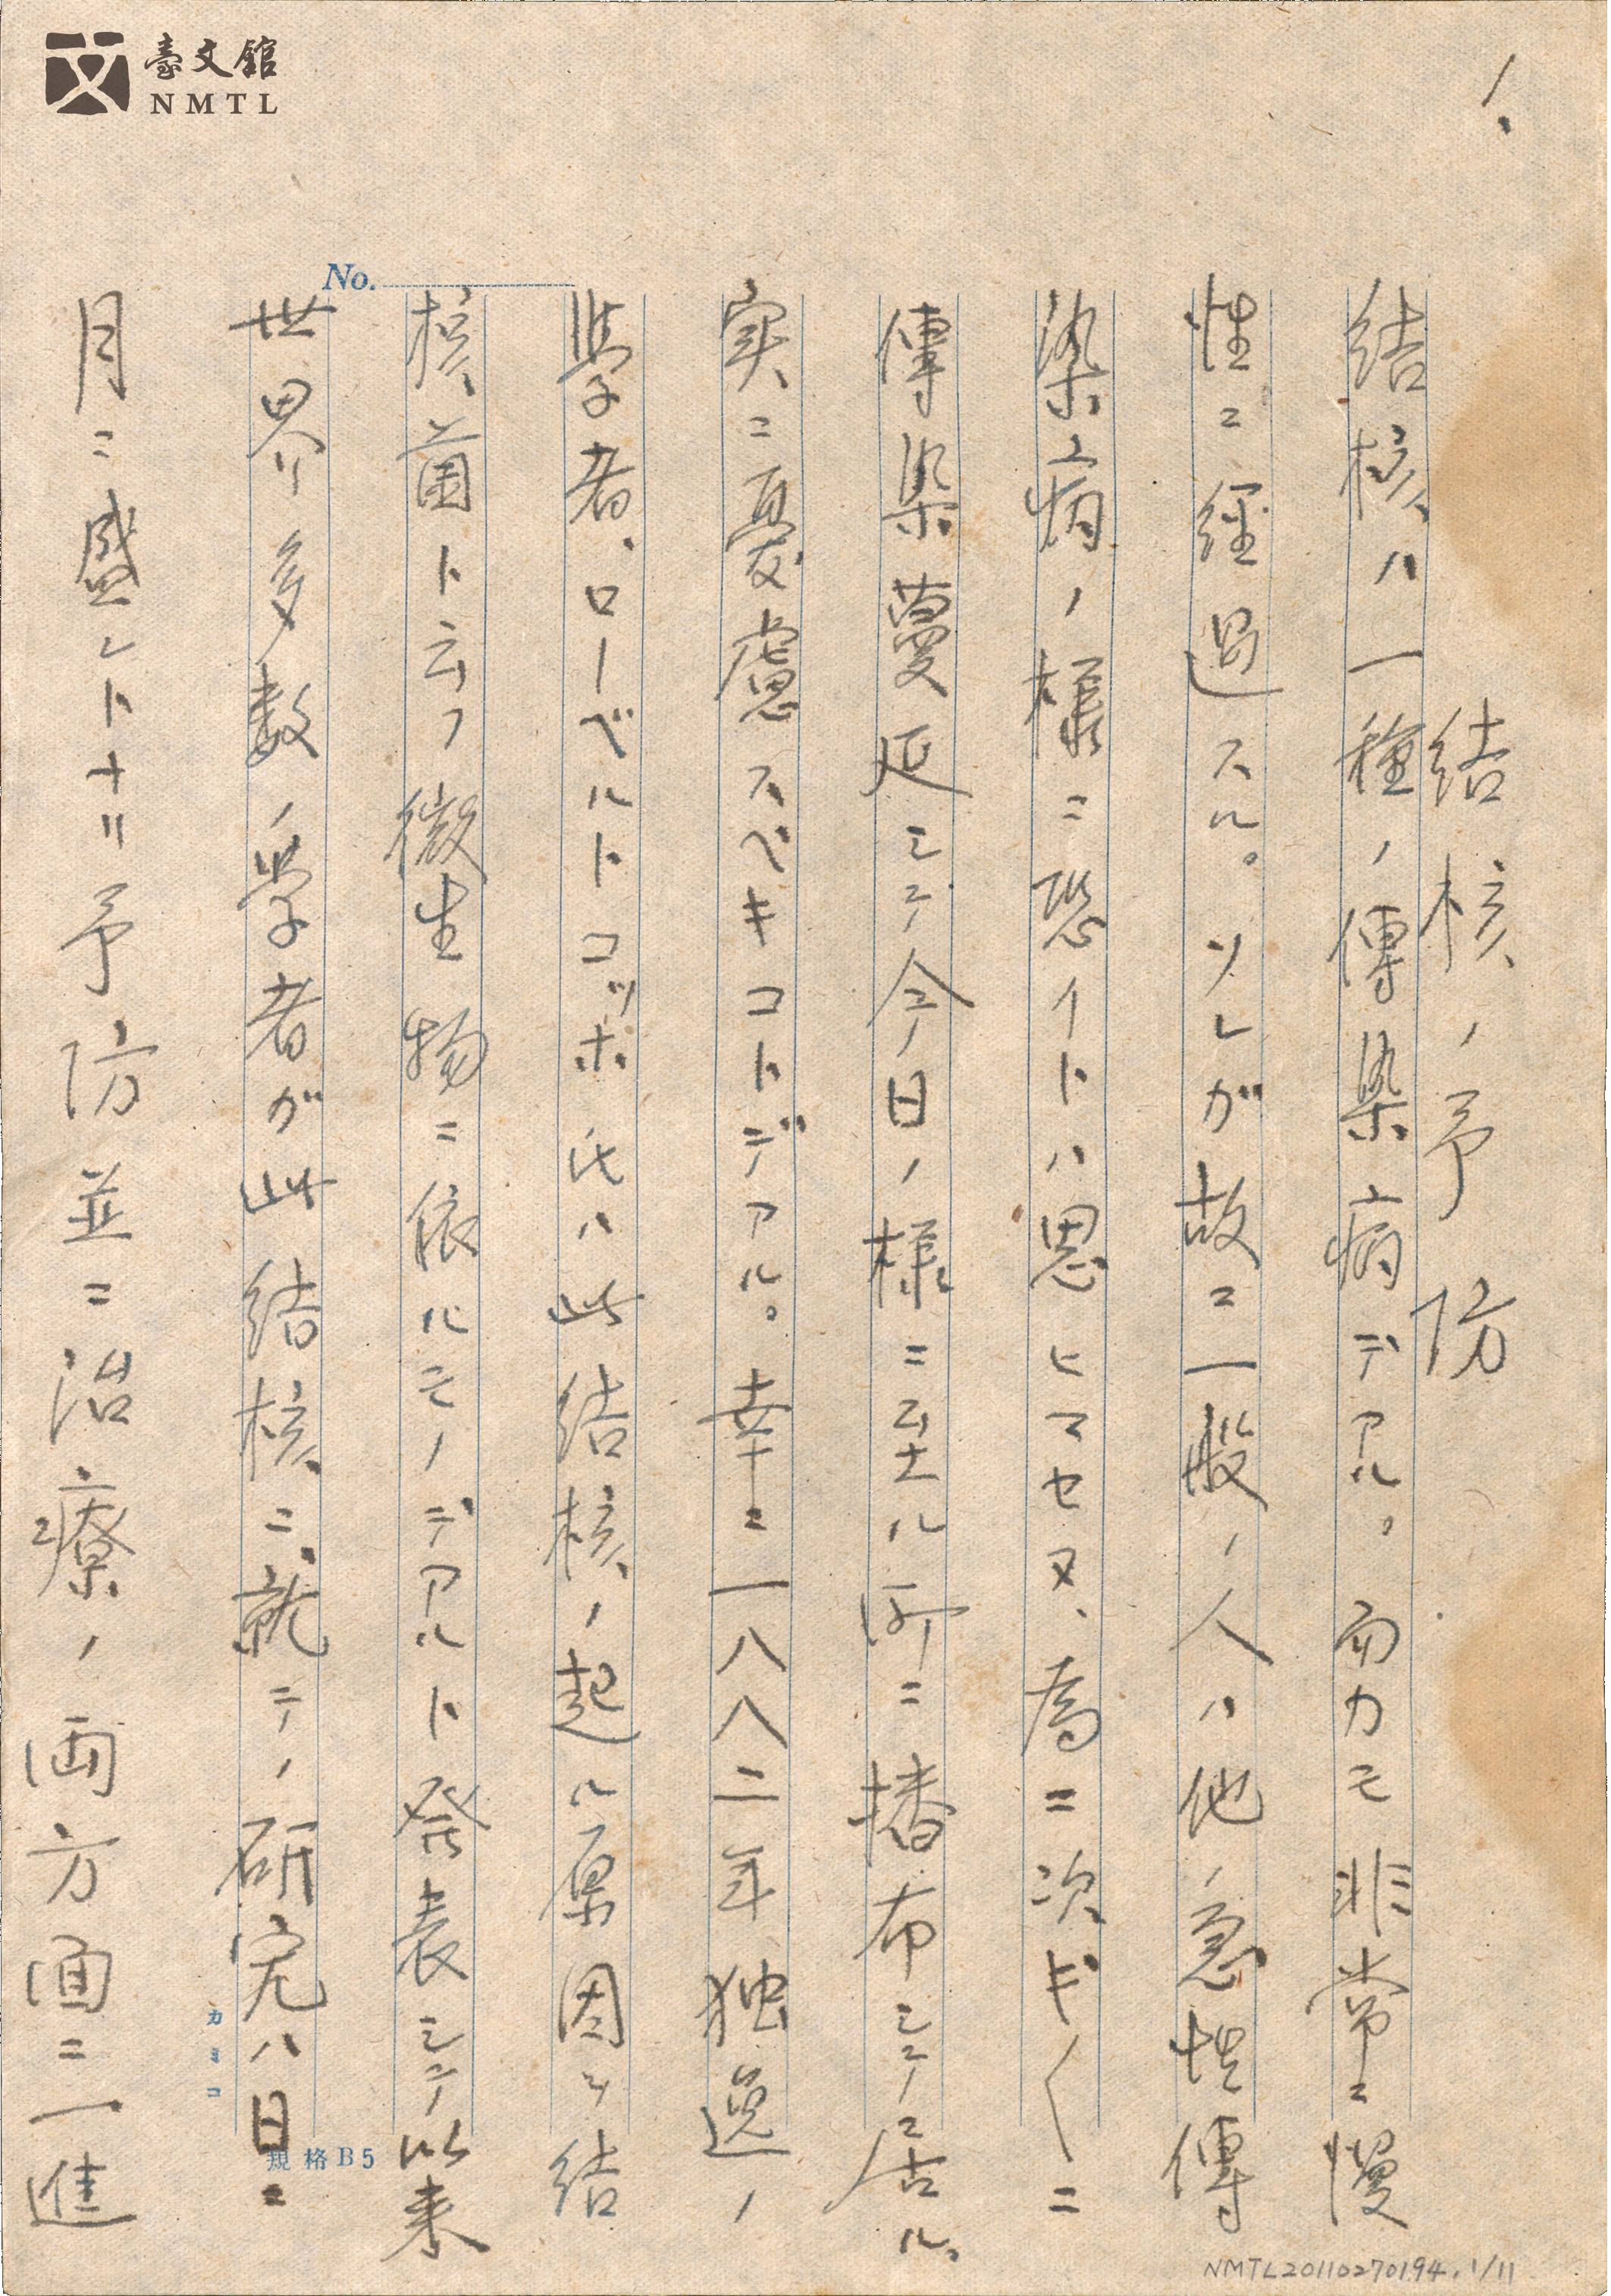 臺文館
NMTL
1.
結核ノ予防
結核ハ一種ノ傳染病デアル。而カモ非常ニ慢
性ニ經過スル。ソレガ故ニ一般ノ人ハ他ノ急性傳
染病ノ様ニ恐イトハ思ヒマセヌ、為ニ次ギ〱ニ
傳染蔓延シテ今日ノ様ニ至ル所ニ播布シテ居ル。
実ニ憂慮スベキコトデアル。幸ニ一八八二年独逸ノ
学者、ローベルトコッホ氏ハ此結核ノ起ル原因ヲ結
No.
核菌ト云フ微生物ニ依ルモノデアルト発表シテ以来
世界多数ノ学者ガ此結核ニ就テノ研究ハ日ニ
月ニ盛ントナリ予防並ニ治療ノ両方面ニ一進
カミコ
規格B5
NMTL20110270194.1/11